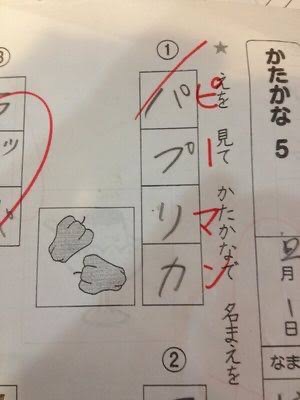 かたかな 5
月 1日
なま
★えを 見て かたかなで 名まえを
①
パプリカ
ピーマン
②
③
ッ